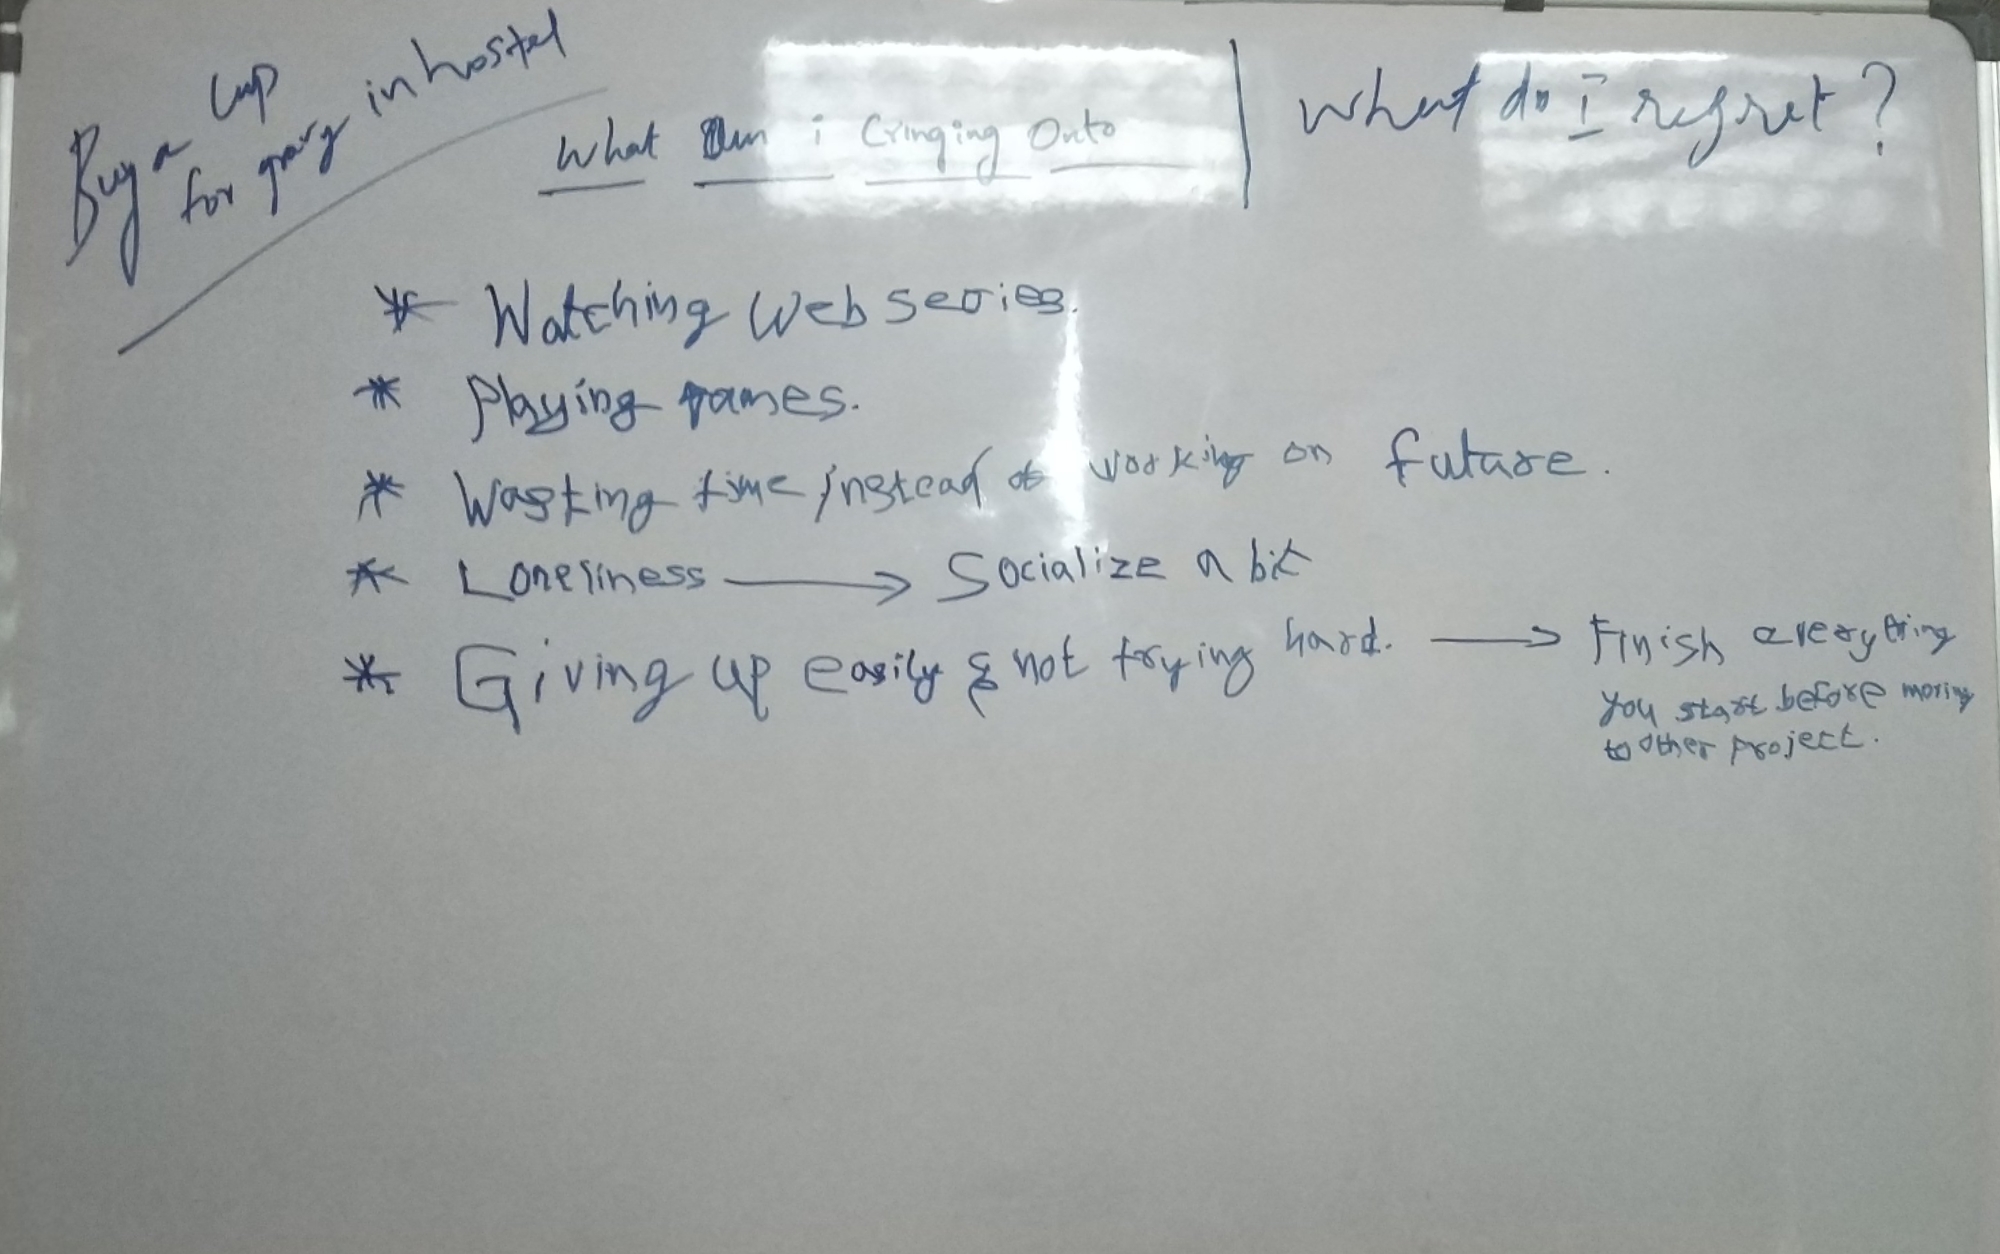 Buy a cup
for gravy in hostel
What am i Cringing Onto
What do I regret?
* Watching Web series.
* Playing games.
* Wasting time instead of working on future.
* Loneliness → Socialize a bit
* Giving up easily & not trying hard. → Finish everything
you start before moving
to other project.